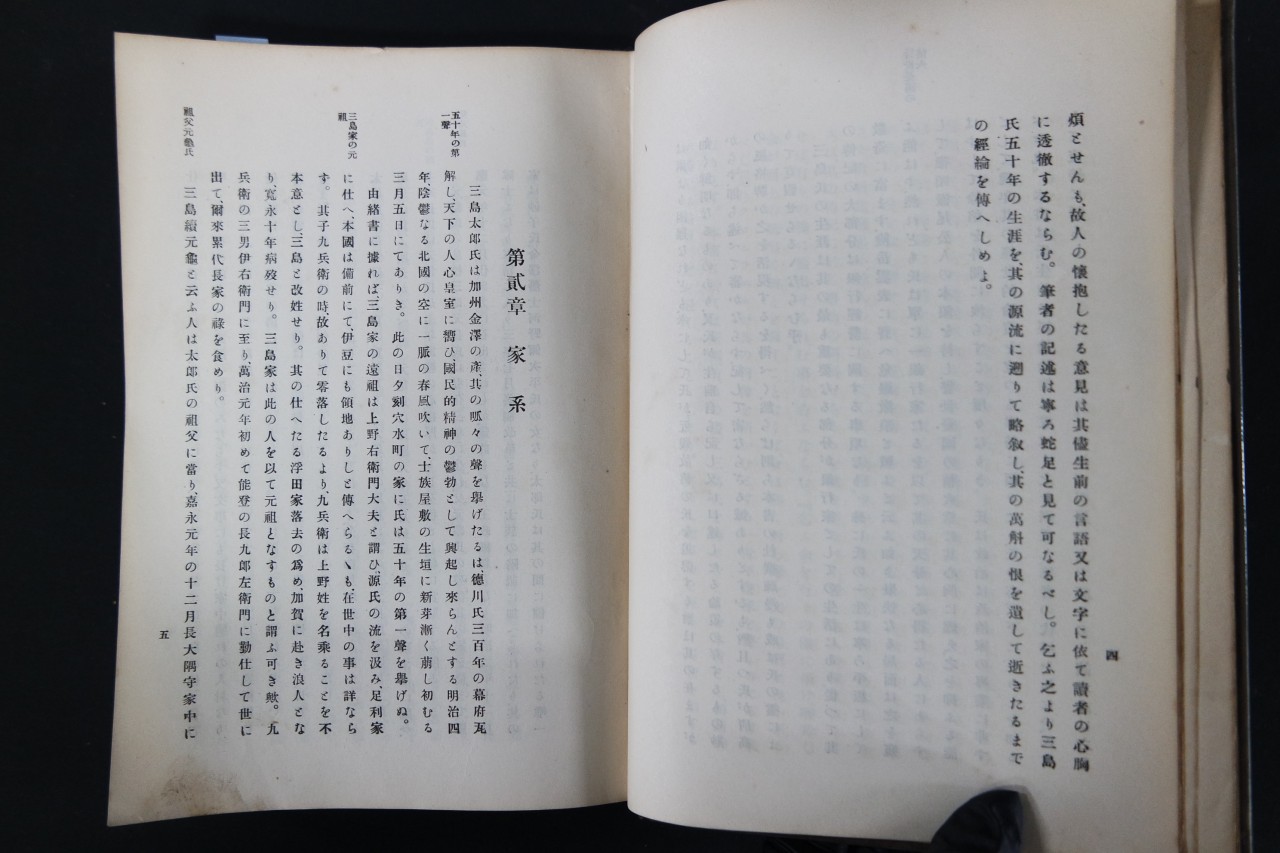 煩とせんも、故人の懷抱したる意見は其儘生前の言語又は文字に依て讀者の心胸
に透徹するならむ。筆者の記述は寧ろ蛇足と見て可なるべし。乞ふ之より三島
氏五十年の生涯を、其の源流に遡りて略叙し、其の萬斛の恨を遺して逝きたるまで
の經綸を傳へしめよ。
四
第貳章　家系
五十年の第
一聲
三島太郎氏は加州金澤の產、其の呱々の聲を擧げたるは、德川氏三百年の幕府瓦
解し、天下の人心皇室に嚮ひ、國民的精神の鬱勃として興起し來らんとする明治四
年、陰鬱なる北國の空に一脈の春風吹いて、士族屋敷の生垣に新芽漸く萠し初むる
三月五日にてありき。此の日夕刻穴水町の家に氏は五十年の第一聲を擧げぬ。
三島家の元
祖
由緒書に據れば、三島家の遠祖は上野右衛門大夫と謂ひ、源氏の流を汲み、足利家
に仕へ、本國は備前にて、伊豆にも領地ありしと傳へらるゝも、在世中の事は詳なら
す。其子九兵衛の時、故ありて零落したるより、九兵衛は上野姓を名乘ることを不
本意とし、三島と改姓せり。其の仕へたる浮田家落去の爲め、加賀に赴き浪人とな
り、寬永十年病歿せり。三島家は此の人を以て元祖となすものと謂ふ可き歟。九
兵衛の三男伊右衛門に至り、萬治元年初めて能登の長九郎左衛門に勤仕して世に
出て、爾來累代長家の祿を食めり。
祖父元龜氏
三島續元龜と云ふ人は太郎氏の祖父に當り、嘉永元年の十二月長大隅守家中に
五